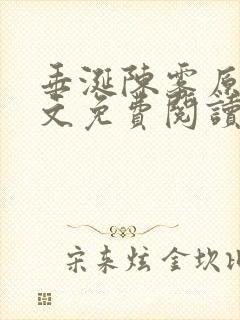 垂涎陳雾原
文免費閱讀
宋来炫 金坎比